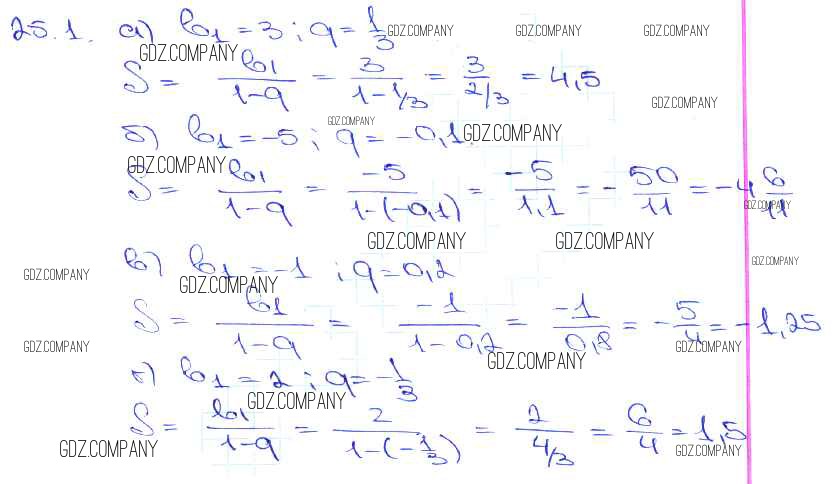 25.1. а) b₁ = 3 ; q = 1/3 GDZ.COMPANY GDZ.COMPANY GDZ.COMPANY
GDZ.COMPANY
S = b₁/(1-q) = 3/(1-1/3) = 3/(2/3) = 4,5
GDZ.COMPANY
GDZ.COMPANY
б) b₁ = -5 ; q = -0,1. GDZ.COMPANY
GDZ.COMPANY
S = b₁/(1-q) = -5/(1-(-0,1)) = -5/1,1 = -50/11 = -4 6/11
GDZ.COMPANY
GDZ.COMPANY GDZ.COMPANY
в) b₁ = -1 ; q = 0,2
GDZ.COMPANY GDZ.COMPANY GDZ.COMPANY
S = b₁/(1-q) = -1/(1-0,2) = -1/0,8 = -5/4 = -1,25
GDZ.COMPANY GDZ.COMPANY
GDZ.COMPANY
г) b₁ = 2 ; q = -1/3
GDZ.COMPANY
S = b₁/(1-q) = 2/(1-(-1/3)) = 2/(4/3) = 6/4 = 1,5
GDZ.COMPANY GDZ.COMPANY